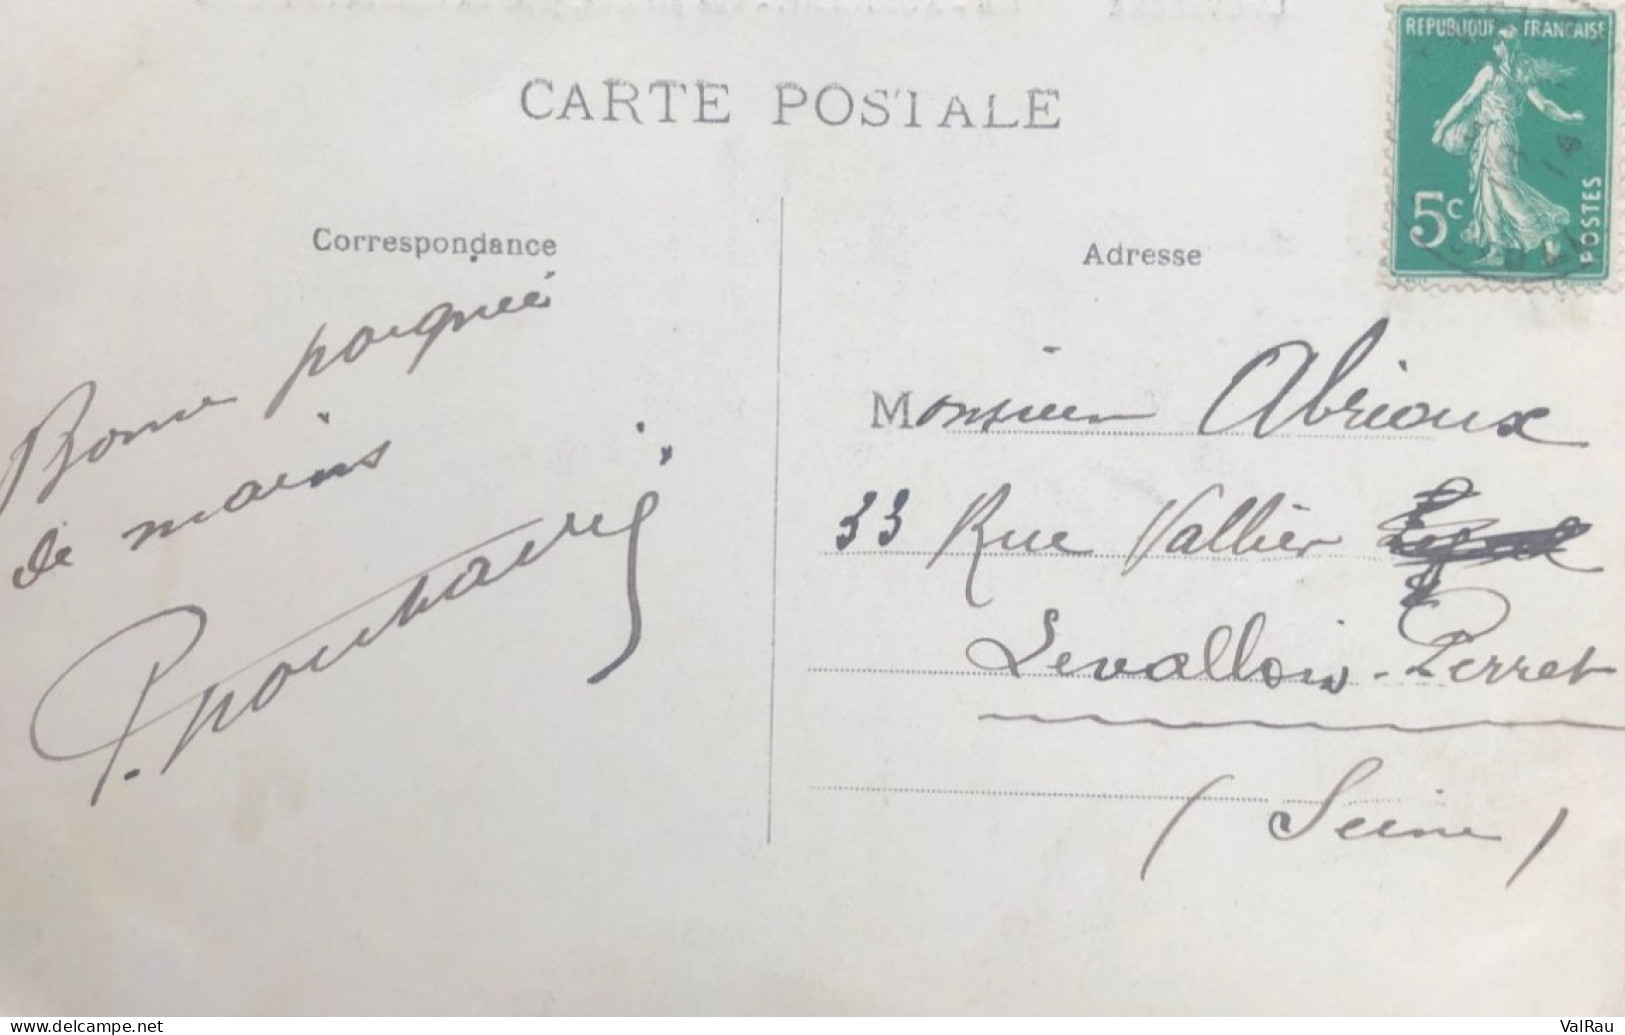 CARTE POSTALE
REPUBLIQUE FRANCAISE
5c
POSTES
14
Correspondance
Bonne poignée
de mains
Adresse
Monsieur Abrioux
33 Rue Vallier
Levallois-Perret
(Seine)
ValRau